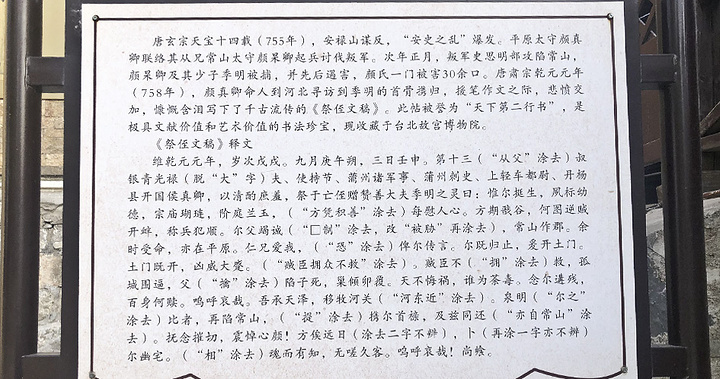 唐玄宗天宝十四载（755年），安禄山谋反，“安史之乱”爆发。平原太守颜真
卿联络其从兄常山太守颜杲卿起兵讨伐叛军。次年正月，叛军史思明部攻陷常山，
颜杲卿及其少子季明被捕，并先后遇害，颜氏一门被害30余口。唐肃宗乾元元年
（758年），颜真卿命人到河北寻访到季明的首骨携归，援笔作文之际，悲愤交
加，慷慨含泪写下了千古流传的《祭侄文稿》。此帖被誉为“天下第二行书”，是
极具文献价值和艺术价值的书法珍宝，现收藏于台北故宫博物院。
《祭侄文稿》释文
维乾元元年，岁次戊戌。九月庚午朔，三日壬申。第十三（“从父”涂去）叔
银青光禄（脱“大”字）夫、使持节、蒲州诸军事、蒲州刺史、上轻车都尉、丹杨
县开国侯真卿，以清酌庶羞，祭于亡侄赠赞善大夫季明之灵曰：惟尔挺生，夙标幼
德，宗庙瑚琏，阶庭兰玉，（“方凭积善”涂去）每慰人心。方期戬谷，何图逆贼
开衅，称兵犯顺。尔父竭诚（“□制”涂去，改“被胁”再涂去），常山作郡。余
时受命，亦在平原。仁兄爱我，（“恐”涂去）俾尔传言。尔既归止，爰开土门。
土门既开，凶威大蹙。（“贼臣拥众不救”涂去）。贼臣不（“拥”涂去）救，孤
城围逼，父（“擒”涂去）陷子死，巢倾卵覆。天不悔祸，谁为荼毒。念尔遘残，
百身何赎。呜呼哀哉。吾承天泽，移牧河关（“河东近”涂去）。泉明（“尔之”
涂去）比者，再陷常山，（“提”涂去）携尔首榇，及兹同还（“亦自常山”涂
去）。抚念摧切，震悼心颜！方俟远日（涂去二字不辨），卜（再涂一字亦不辨）
尔幽宅。（“相”涂去）魂而有知，无嗟久客。呜呼哀哉！尚飨。